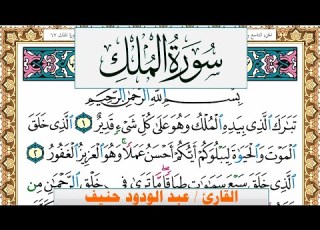 سُورَةُ المُلْكِ
بِسْمِ اللَّهِ الرَّحْمَٰنِ الرَّحِيمِ
تَبَٰرَكَ الَّذِى بِيَدِهِ الْمُلْكُ وَهُوَ عَلَىٰ كُلِّ شَىْءٍ قَدِيرٌ ١ الَّذِى خَلَقَ
الْمَوْتَ وَالْحَيَوٰةَ لِيَبْلُوَكُمْ أَيُّكُمْ أَحْسَنُ عَمَلًا وَهُوَ الْعَزِيزُ الْغَفُورُ ٢
الَّذِى خَلَقَ سَبْعَ سَمَٰوَٰتٍ طِبَاقًا مَّا تَرَىٰ فِى خَلْقِ الرَّحْمَٰنِ مِن
القارئ / عبد الودود حنيف